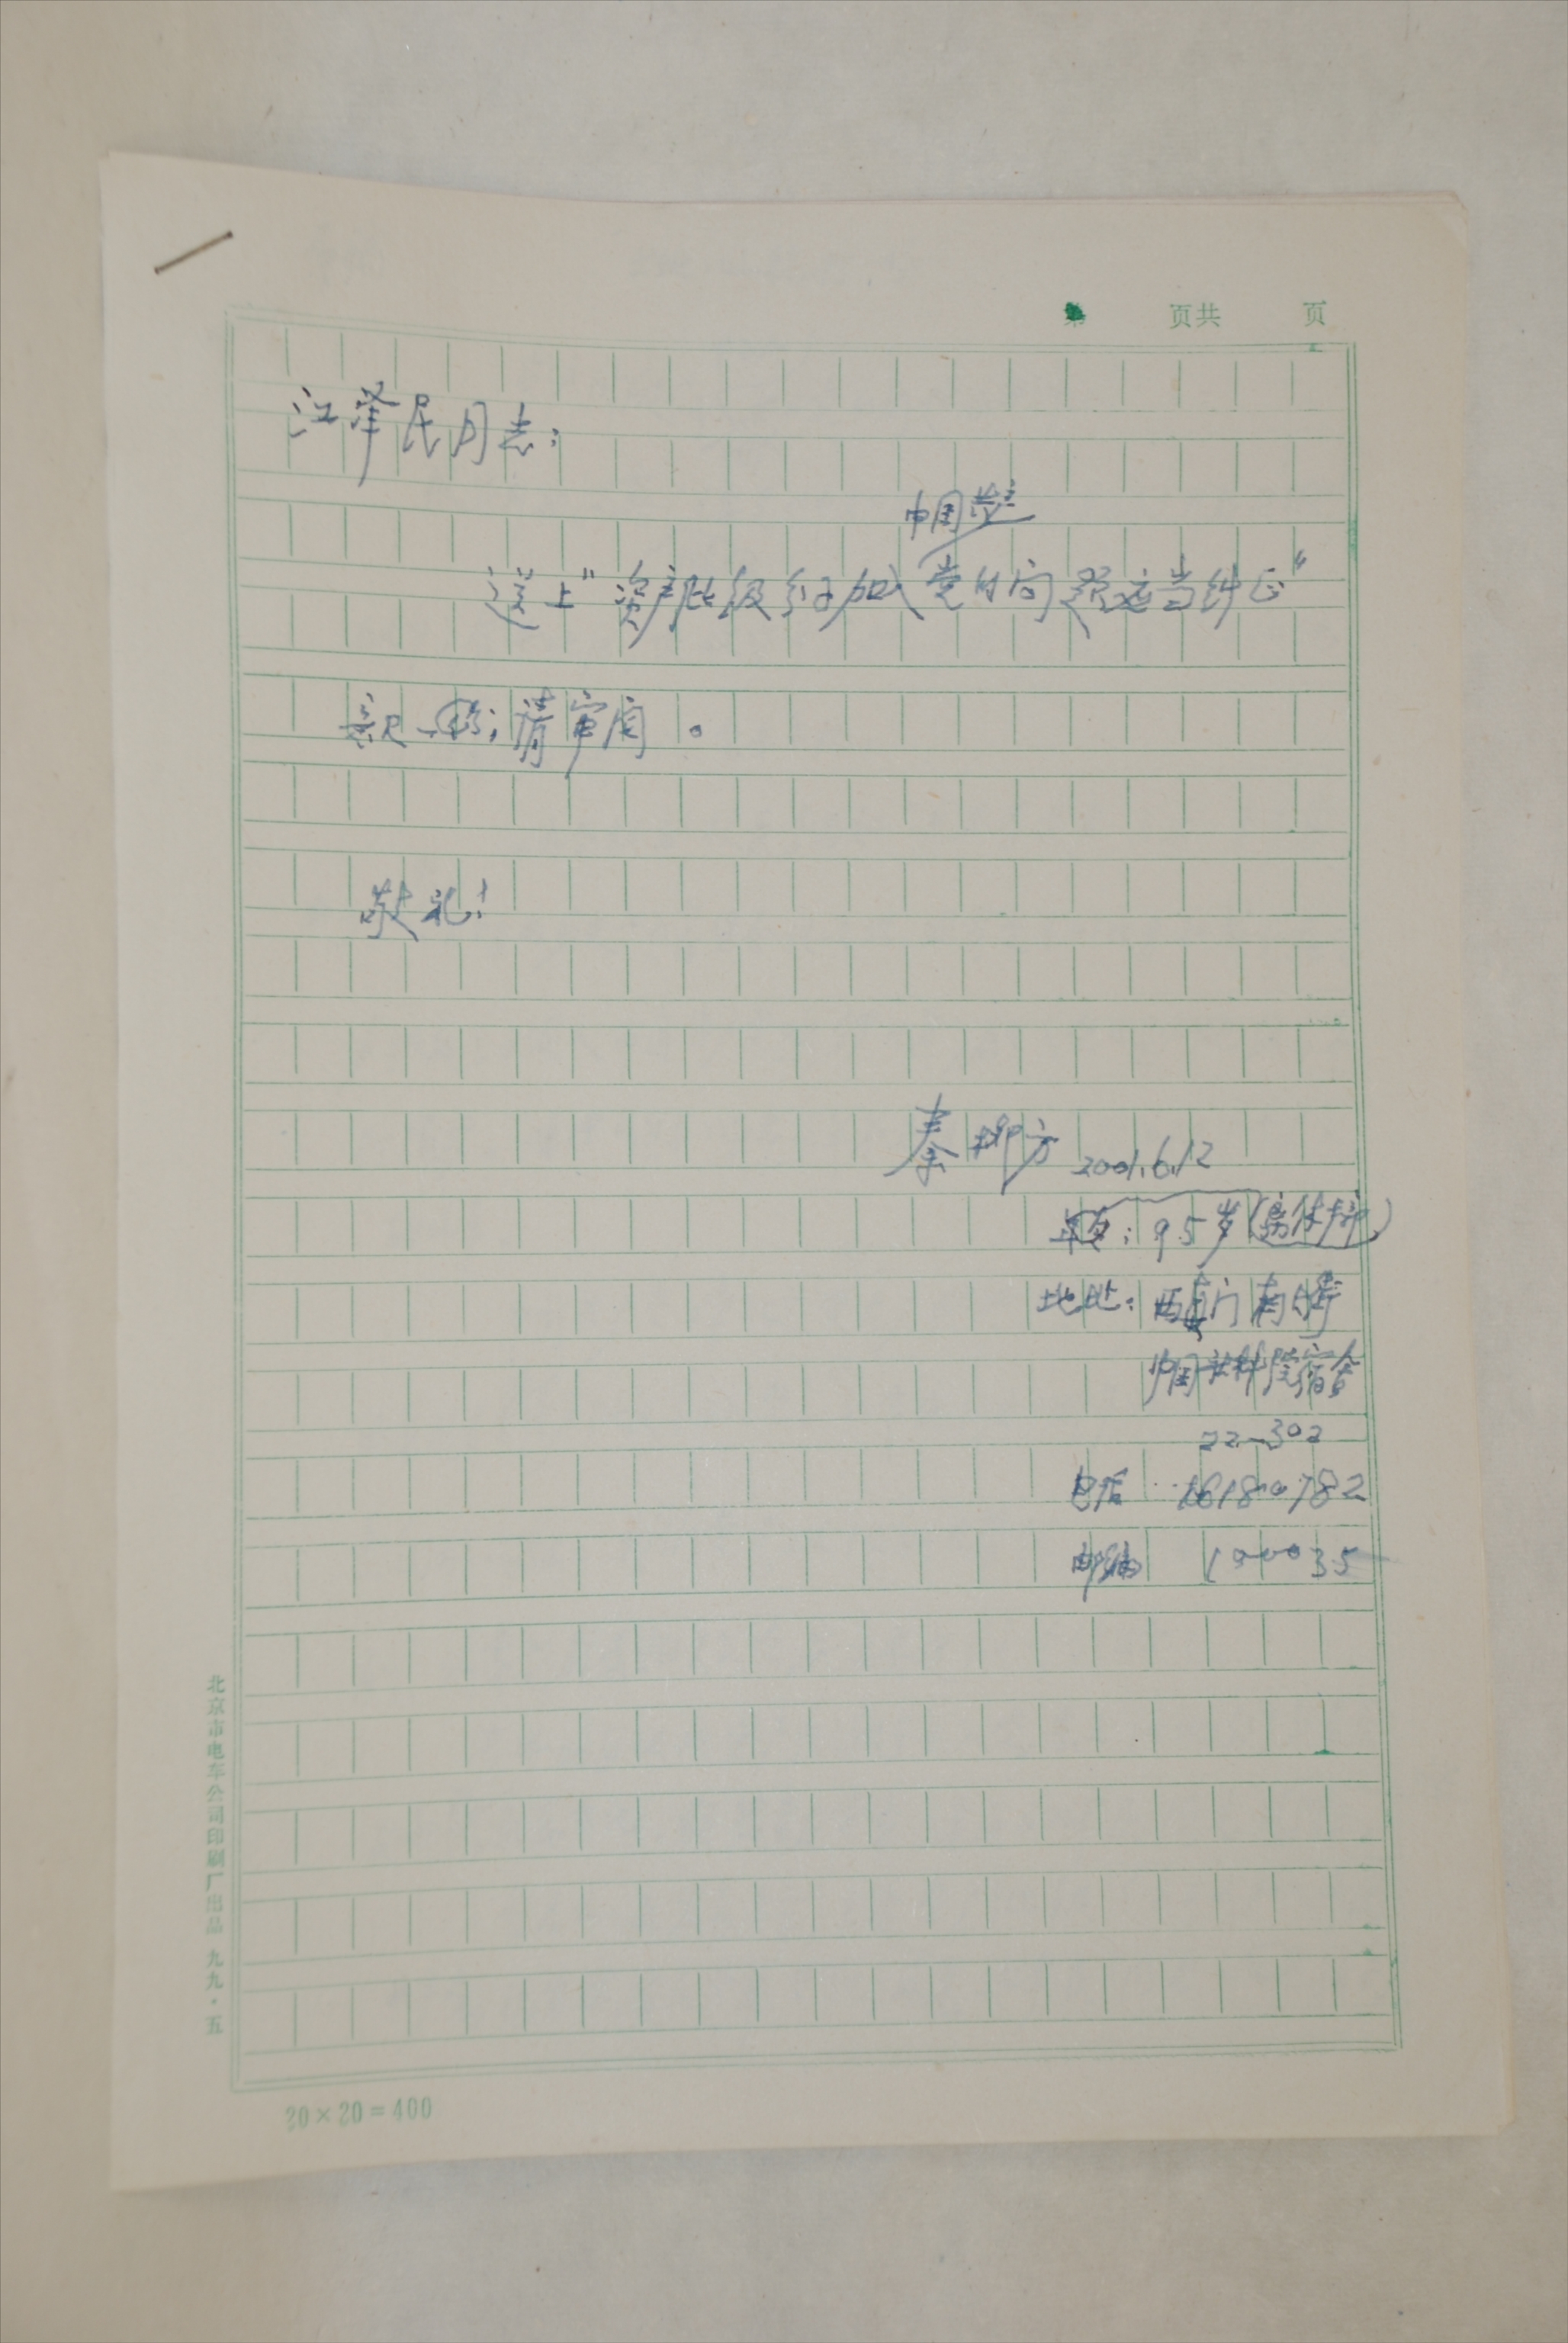 第 页共 页
江泽民同志：
中国共产
送上“资产阶级分子加入党的问题应当纠正”
意见一份；请审阅。
敬礼！
秦柳方 2001.6.12
年龄：95岁（离休干部）
地址：西直门南小街
中国社科院宿舍
22-302
电话 66180782
邮编 100035
北京市电车公司印刷厂出品 九九·五
20×20=400